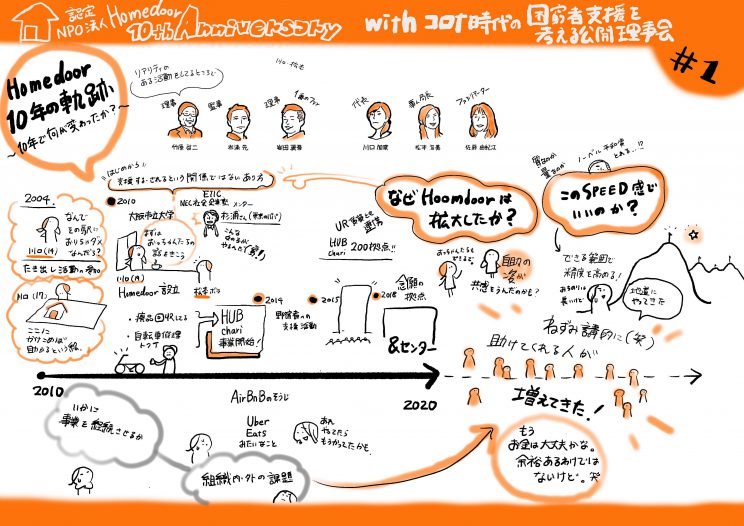 認定
NPO法人 Homedoor
10th Anniversary
with コロナ時代の
困窮者支援を
考える公開理事会
#1
Homedoor
10年の軌跡
〜10年で何が変わったか?〜
リアリティの
ある活動をしてるところで
理事
監事
理事
代表
事務局長
ファンドレーザー
川口 加奈
松本 浩美
はじめから
支援する・されるという関係ではないあり方
2004.
なんで
その駅に
おりちゃダメ
なんだろ?
川口(14)
たき出し活動の参加
川口(17)
ここに
かけこめば
助かるという絵。
2010
大阪市立大学
まずは
おっちゃんたちの
話をきこう
川口(19)
Homedoor 設立
ETIC
NEC社会企業塾
メンター
2014
HUB
chari
事業開始!
自転車修理
UR
連携
HUB
chari
200拠点!!
野宿者への
支援活動
2015
2018
念願
の拠点
&センター
なぜ Hoomdoorは
拡大したか?
おっちゃんたちも
自助の
姿が
共感をうんだのかも?
ノーベル平和賞
とれる…!?
このSPEED感で
いいのか?
できる範囲で
精度を高める!
地道に
やってきた
ねずみ講的に(笑)
助けてくれる人が
増えてきた!
2010
2020
AirBnBのそうじ
Uber
Eats
みたいなこと
あれ
やってたら
もうかってたかも。
いかに
事業を継続させるか
組織内・外の課題
もう
お金は大丈夫かな。
余裕あるわけでは
ないけど。笑